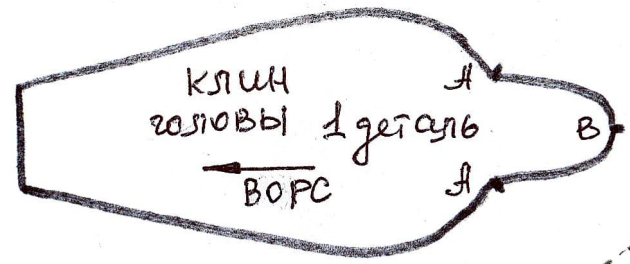 КЛИН
ГОЛОВЫ 1 деталь
ВОРС
А
А
В